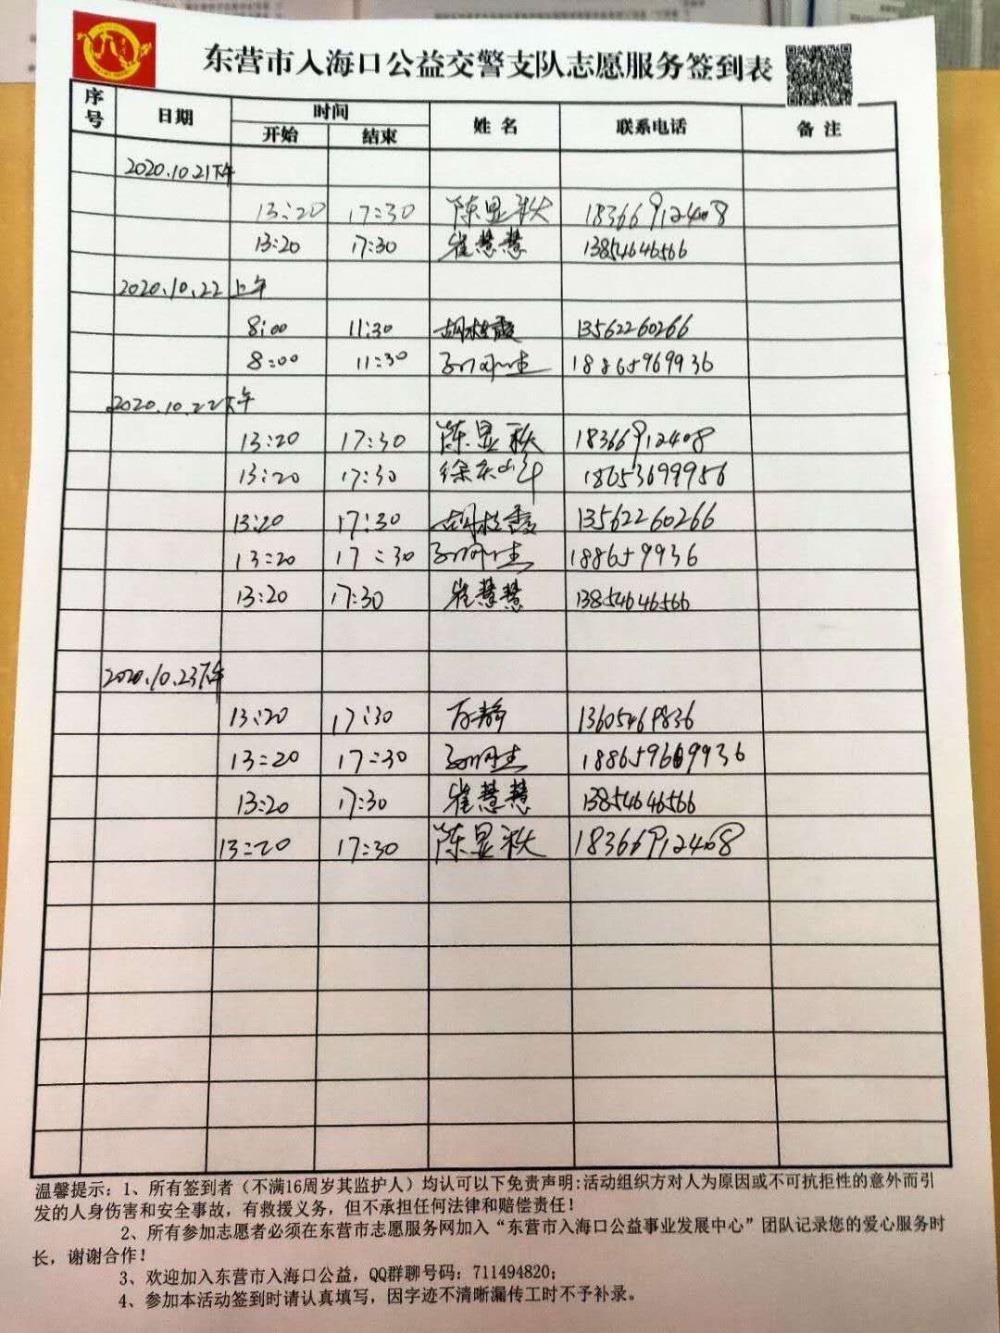 东营市入海口公益交警支队志愿服务签到表
序号 日期 时间 姓名 联系电话 备注
开始 结束
2020.10.21下午
13:20 17:30 陈显秋 18366912408
13:20 17:30 崔慧慧 13854646566
2020.10.22上午
8:00 11:30 胡桂霞 13562260266
8:00 11:30 18865969936
2020.10.22下午
13:20 17:30 陈显秋 18366912408
13:20 17:30 18653699956
13:20 17:30 胡桂霞 13562260266
13:20 17:30 188659936
13:20 17:30 崔慧慧 13854646566
2020.10.23下午
13:20 17:30 13605469836
13:20 17:30
13:20 17:30 崔慧慧 13854646566
13:20 17:30 陈显秋 18366912408
温馨提示：1、所有签到者（不满16周岁其监护人）均认可以下免责声明:活动组织方对人为原因或不可抗拒性的意外而引
发的人身伤害和安全事故，有救援义务，但不承担任何法律和赔偿责任！
2、所有参加志愿者必须在东营市志愿服务网加入“东营市入海口公益事业发展中心”团队记录您的爱心服务时
长，谢谢合作！
3、欢迎加入东营市入海口公益，QQ群聊号码：711494820；
4、参加本活动签到时请认真填写，因字迹不清晰漏传工时不予补录。